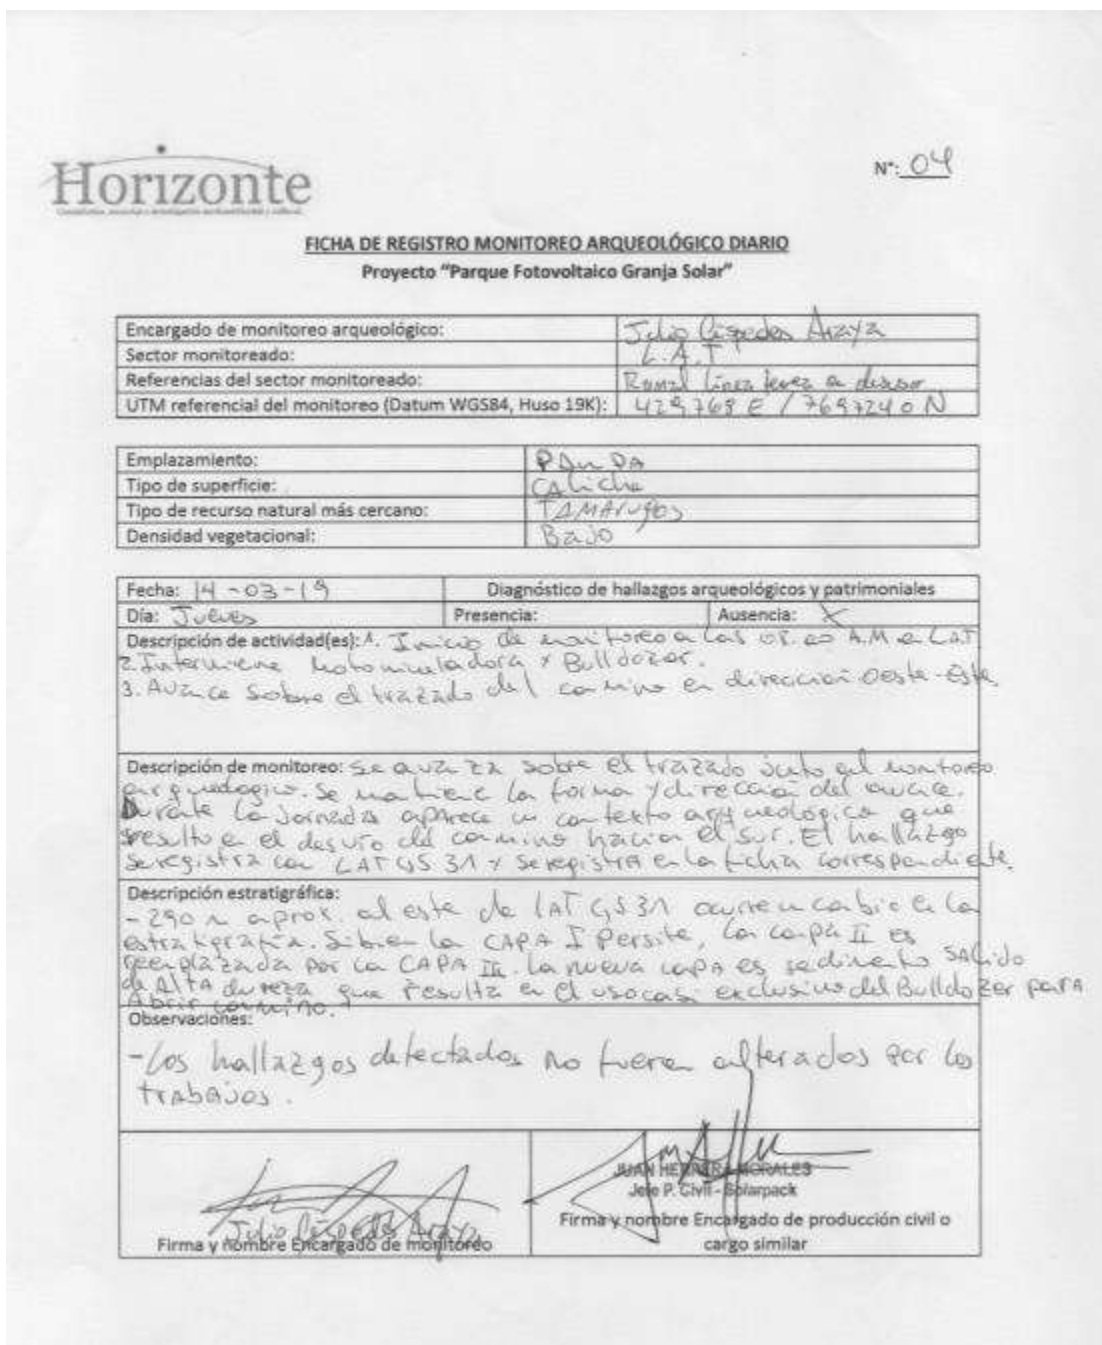 Horizonte
N°: 04
FICHA DE REGISTRO MONITOREO ARQUEOLÓGICO DIARIO
Proyecto "Parque Fotovoltaico Granja Solar"
Encargado de monitoreo arqueológico: Julio Céspedes Araya
Sector monitoreado: L.A.T
Referencias del sector monitoreado: Ramal línea
UTM referencial del monitoreo (Datum WGS84, Huso 19K): 429768 E / 7697240 N
Emplazamiento: PAMPA
Tipo de superficie: CAliche
Tipo de recurso natural más cercano: TAMArugos
Densidad vegetacional: Bajo
Fecha: 14-03-19 Diagnóstico de hallazgos arqueológicos y patrimoniales
Día: Jueves Presencia: Ausencia: X
Descripción de actividad(es): 1. Inicio de monitoreo a las 08.00 A.M en LAT
2. Interviene Motoniveladora y Bulldozer.
3. Avance sobre el trazado del camino en dirección oeste-este.
Descripción de monitoreo: se avanza sobre el trazado junto al monitoreo
arqueologico. Se mantiene la forma y dirección del avance.
Durante la Jornada aparece un contexto arqueológico que
resulto en el desvío del camino hacia el sur. El hallazgo
se registra con LAT GS 31 y se registra en la ficha correspondiente.
Descripción estratigráfica:
- 290 m aprox. al este de LAT GS 31 ocurre un cambio en la
estratigrafía. Si bien la CAPA I Persite, la capa II es
reemplazada por la CAPA III. La nueva capa es sedimento SAlido
de AlTA dureza que resulta en el uso casi exclusivo del Bulldozer parA
Abrir camino.
Observaciones:
- Los hallazgos detectados no fueron alterados por los
trabajos.
Julio Céspedes Araya
Firma y nombre Encargado de monitoreo
JUAN HERRERA MORALES
Jefe P. Civil - Solarpack
Firma y nombre Encargado de producción civil o
cargo similar